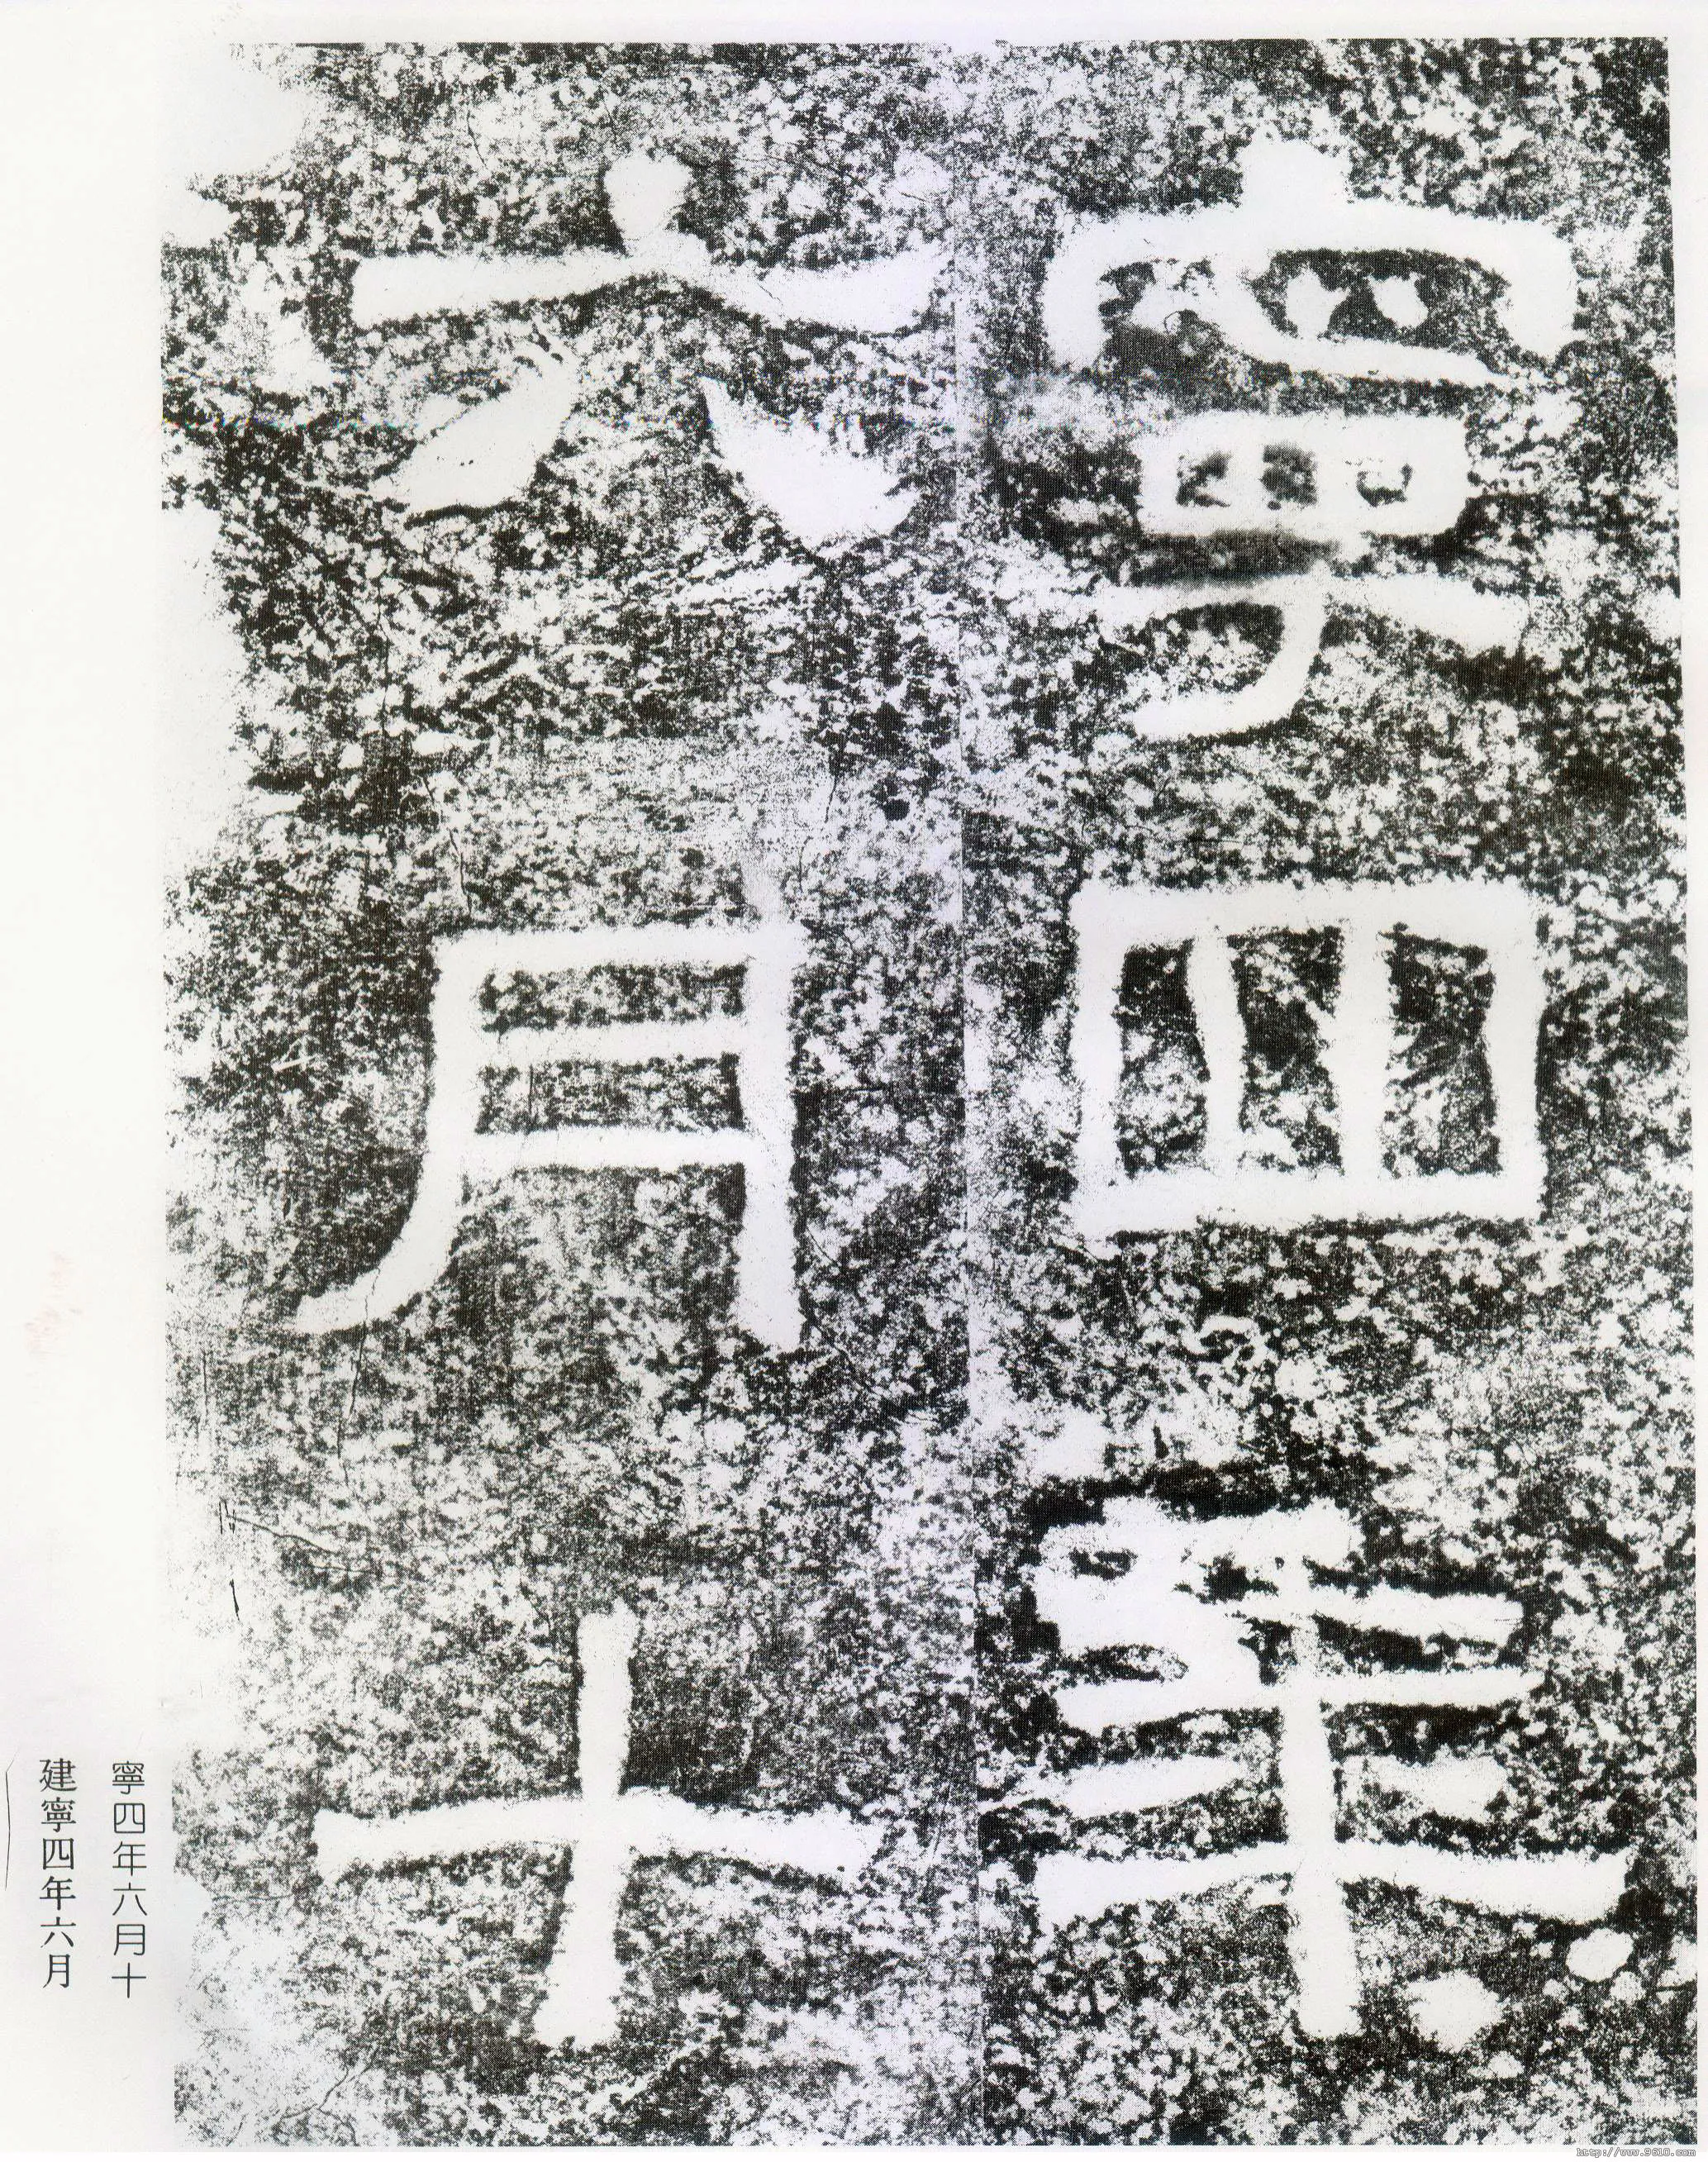 寧四年
六月十
寧四年六月十
建寧四年六月
http://www.9610.com